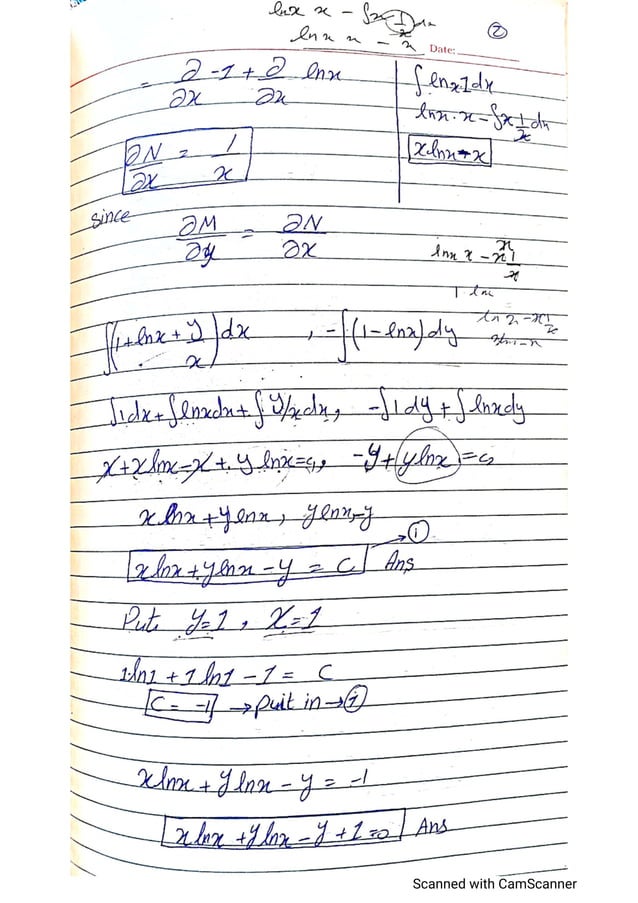 lnx x - ∫x 1/x dx
lnx x - x
②
Date:
= ∂/∂x -1 + ∂/∂x lnx
∂N/∂x = 1/x
∫lnx 1dx
lnx·x - ∫x 1/x dx
xlnx - x
since
∂M/∂y = ∂N/∂x
lnx x - x 1/x
∫(1+lnx+y/x)dx , -∫(1-lnx)dy
∫1dx+∫lnxdx+∫y/xdx, -∫1dy+∫lnxdy
x+xlnx-x+ylnx=c₁, -y+ylnx=c₂
xlnx+ylnx, ylnx-y
xlnx+ylnx-y = C → ① Ans
Put y=1, x=1
1ln1 + 1ln1 - 1 = C
C = -1 → put in → ①
xlnx + ylnx - y = -1
xlnx + ylnx - y + 1 = 0 Ans
Scanned with CamScanner